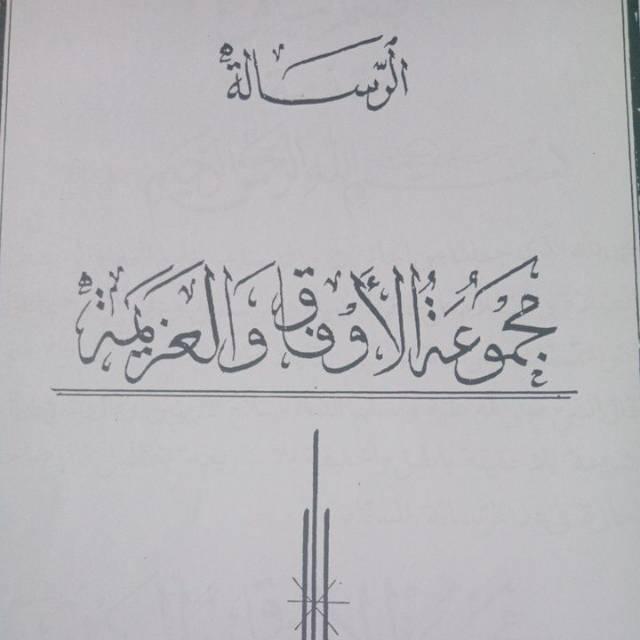 الرّسالة
مجموعة الأوقاق والعزيمة